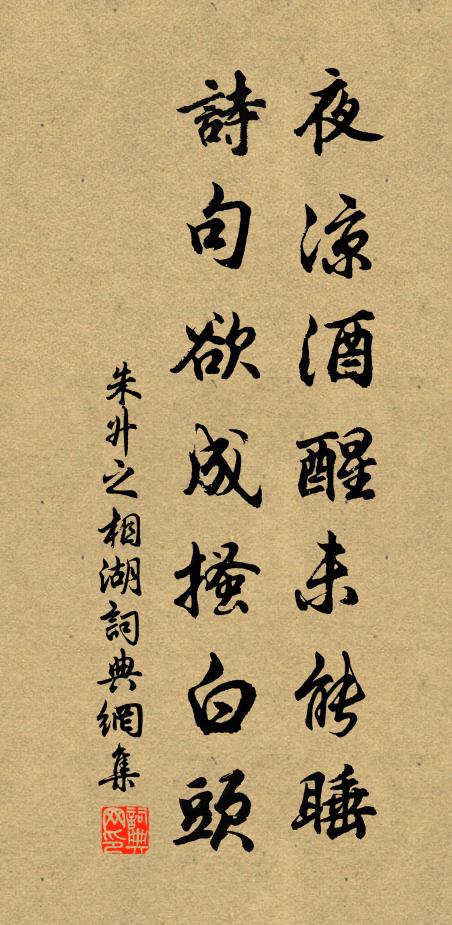 夜涼酒醒未能睡
詩句欲成搔白頭
朱升之相湖詞典網集
詞典網印